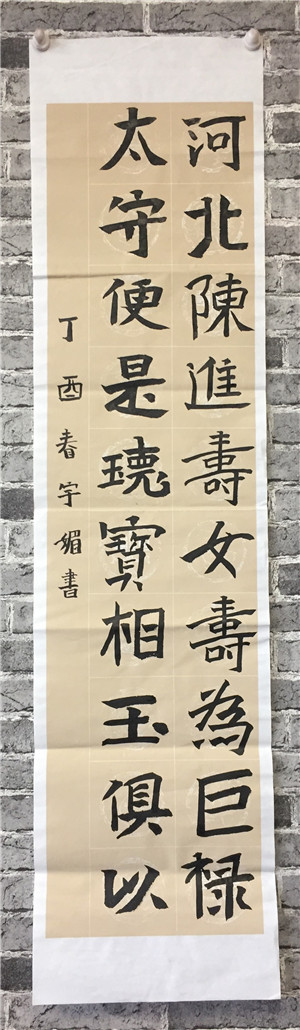 河北陳進壽女壽為巨椂
太守便是瓌寶相玉俱以
丁酉春宇媚書